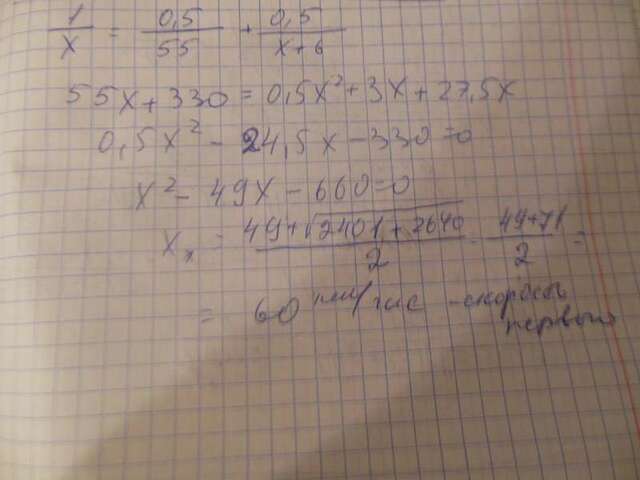 1/x = 0,5/55 + 0,5/x+6
55x + 330 = 0,5x² + 3x + 27,5x
0,5x² - 24,5x - 330 = 0
x² - 49x - 660 = 0
x₁ = 49+√2401+2640/2 = 49+71/2 =
= 60 км/час - скорость
первого